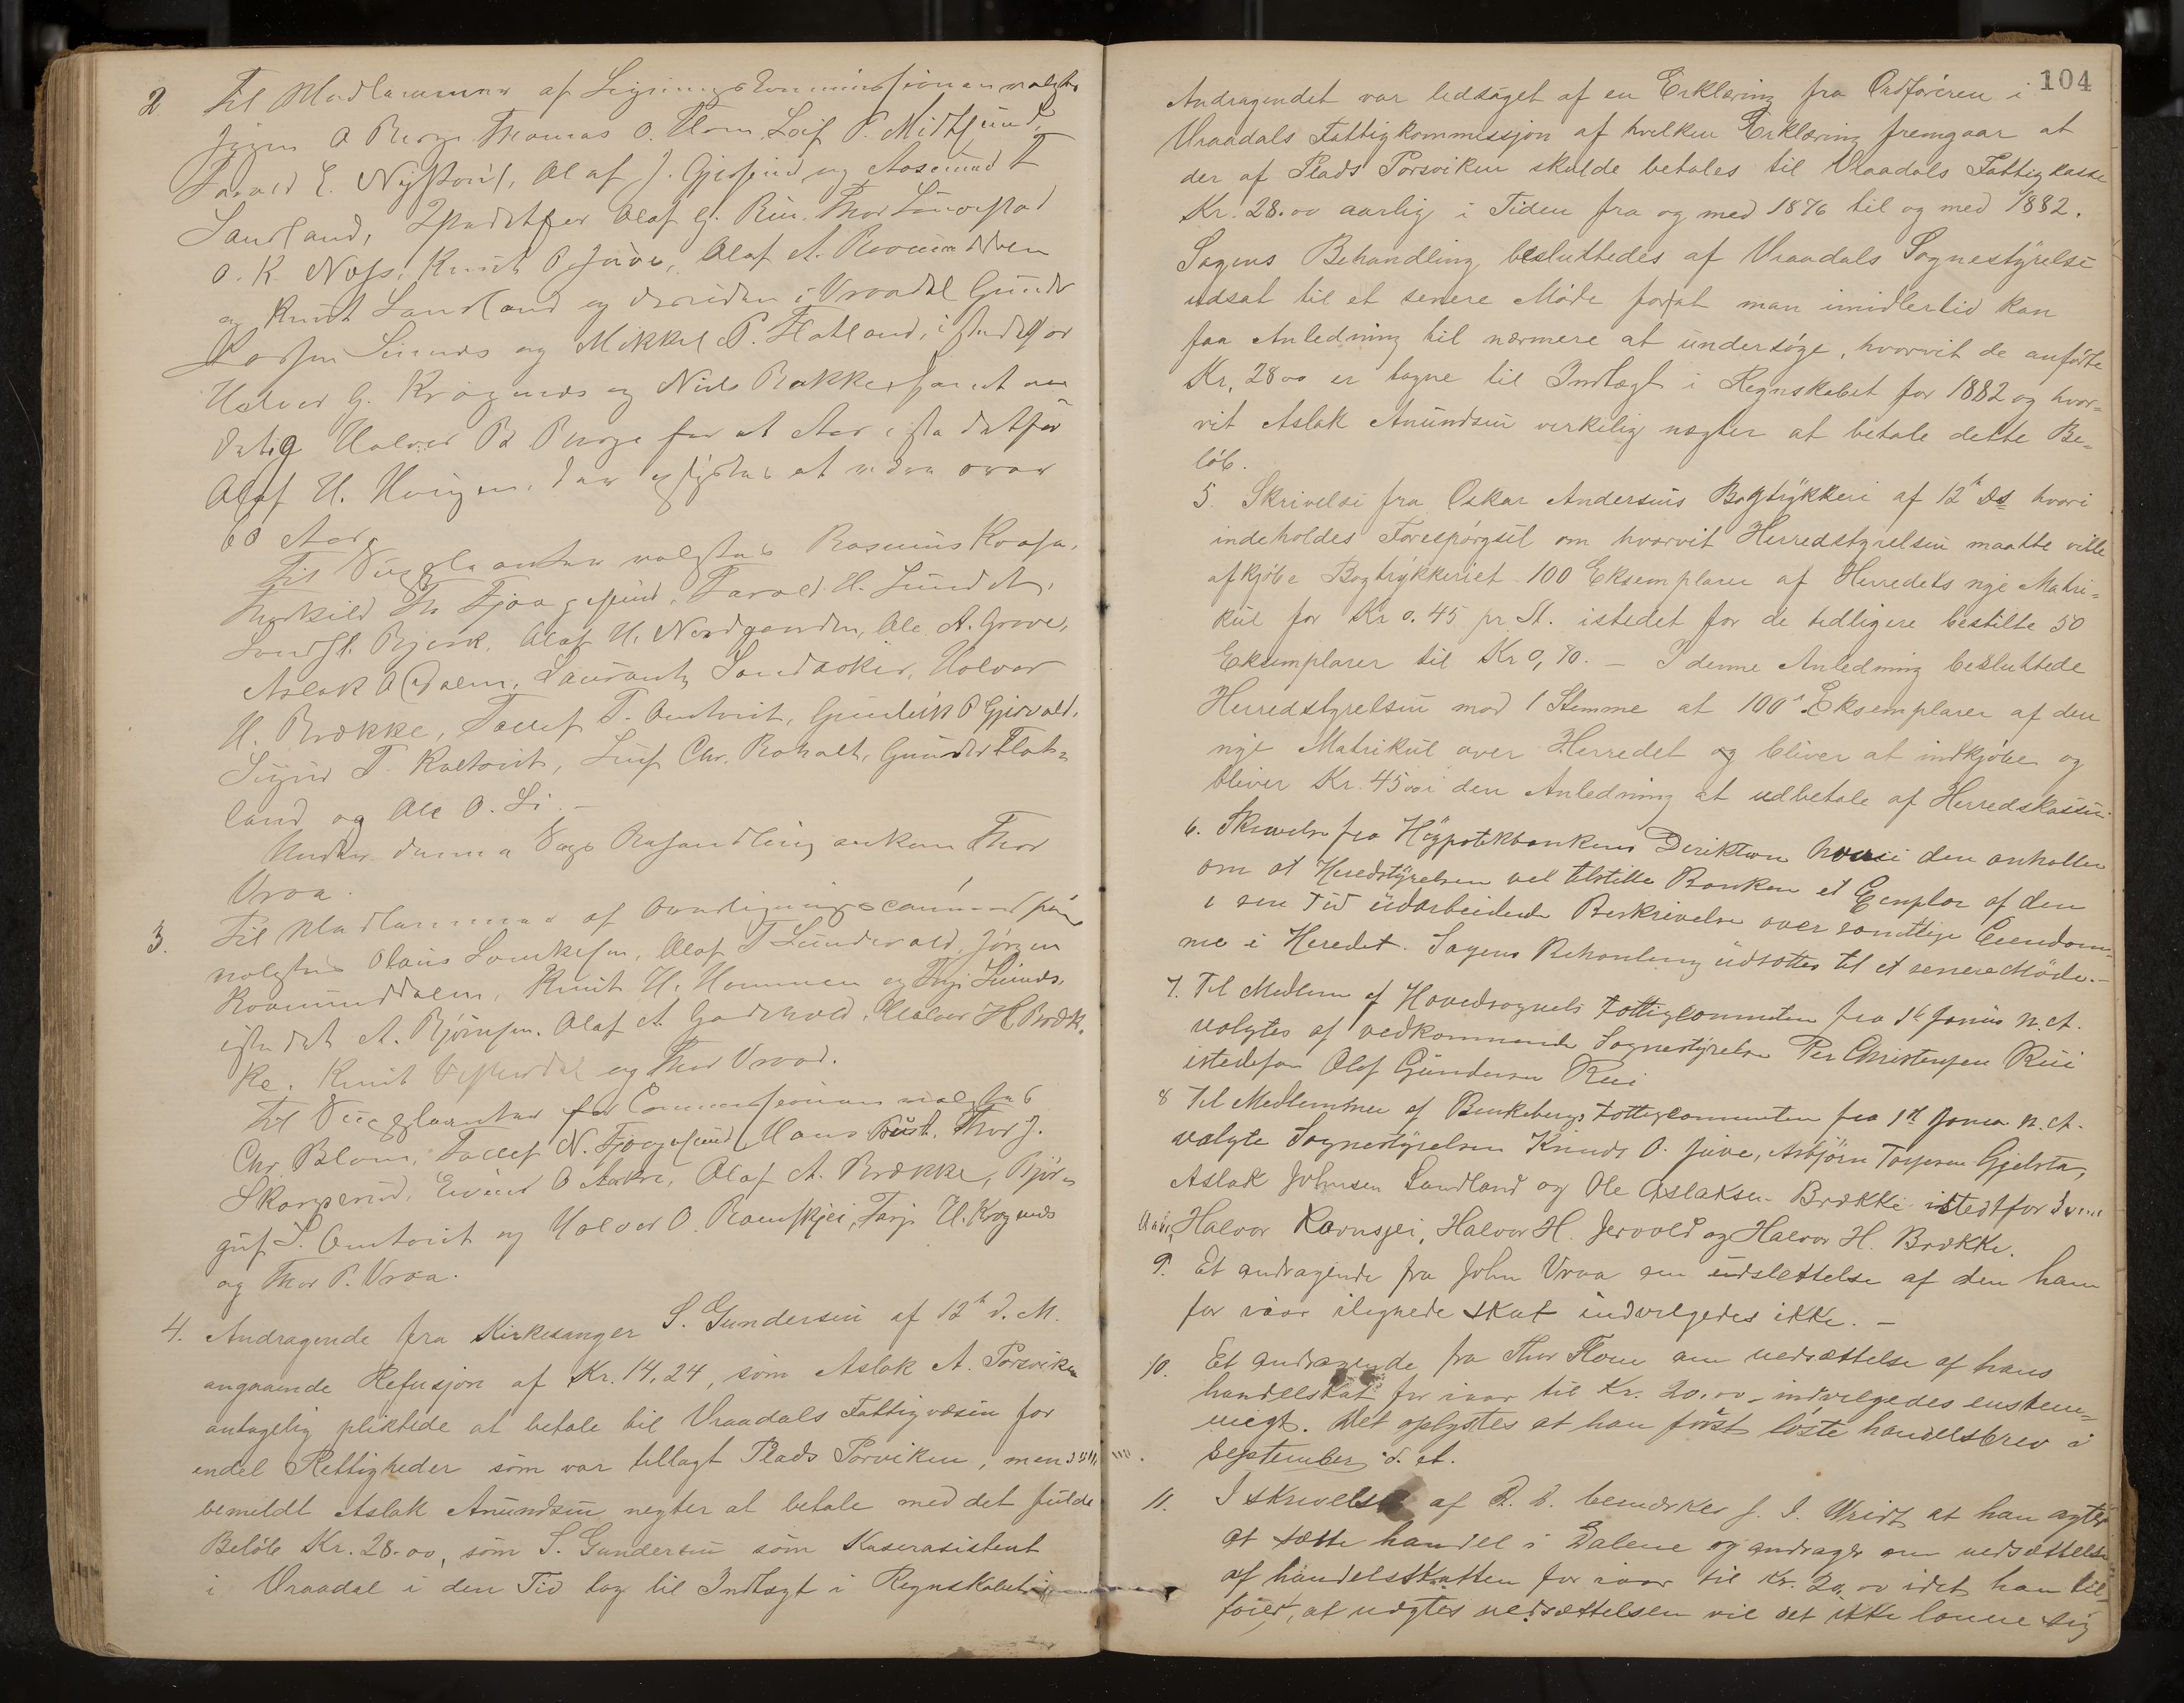 2 Til Medlemmer af Ligningskommissionen valgtes
Jørgen O Berge Thomas O. Flom Leif P. Midtsund,
Tarald E. Nystoul, Olaf J. Gjersund og Aasmund T
Sandland, istedetfor Olaf G. Rui, Thor Lønnestad
O. K. Næs, Knut O Juve, Olaf A. Roomdalen
og Knut Sandland og desuden i Vraadal Gunder
Larsen Sinnes og Mikkel P. Flatland, istedetfor
Halvor G. Kragnæs og Niels Bakken samt
Halvor P. Berge for et Aar istedetfor
Olaf H. Haugen, der oplystes at være over
60 Aar.
Til Suppleanter valgtes Rasmus Kroken,
Torkild Th. Fjaagesund, Tarald H. Lunden,
Bjerk, Olaf H. Nordgarden, Ole A. Grave,
Aslak O Dalen, Laurants Sandaaker, Halvor
H. Brække, Tollef T. Omtvedt, Gunleik P Gjervald,
Sigurd T. Kaltvedt, Leif Chr. Roholt, Gunder Flat-
land og Ole O. Li.—
Under denne Sags Behandling ankom Thor
Vraa.
3. Til Medlemmer af Overligningscommissionen
valgtes Olaus Lauritsen, Olaf T Lundevald, Jørgen
Roomunddalen, Knut H. Hommen og Terje Sinnes,
istedet A. Bjørnsen, Olaf A. Gardsvold, Halvor H Bræk-
ke, Knut Vesterdal og Thor Vraa.
Til Suppleanter for Commissionen valgtes
Chr. Blom, Tollef N. Fjaagesund, Hans Bust, Thor J.
Skarperud, Eivind O Aakre, Olaf A. Brække, Bjør-
guf S. Omtvedt og Halvor O. Ramskjei, Tarje H. Kragnæs
og Thor P. Vraa.
4. Andragende fra Kirkesanger S. Gundersen af 12te d. M.
angaaende Refusjon af Kr. 14,24, som Aslak A. Porsviken
antagelig pliktede at betale til Vraadals Fattigvæsen for
endel Rettigheder som var tillagt Plads Porviken, men som
bemeldt Aslak Anundsen negter at betale med det fulde
Beløb Kr. 28.00, som S. Gundersen som Kaserasistent
i Vraadal i den Tid tog til Indtægt i Regnskabet
104
Andragendet var ledsaget af en Erklæring fra Ordføreren i
Vraadals Fattigkommissjon af hvilken Erklæring fremgaar at
der af Plads Porsviken skulde betales til Vraadals Fattigkasse
Kr. 28.00 aarlig i Tiden fra og med 1876 til og med 1882.
Sagens Behandling besluttedes af Vraadals Sognestyrelse
udsat til et senere Møde forat man imidlertid kan
faa Anledning til nærmere at undersøge, hvorvit de anførte
Kr. 28 00 er tagne til Indtægt i Regnskabet for 1882 og hvor-
vit Aslak Anundsen virkelig nægter at betale dette Be-
løb.
5. Skrivelse fra Oskar Andersens Bogtrykkeri af 12te ds hvori
indeholdes Forespørgsel om hvorvit Herredstyrelsen maatte ville
afkjøbe Bogtrykkeriet 100 Eksemplarer af Herredets nye Matri-
kul for Kr 0.45 pr St. istedet for de tidligere bestilte 50
Eksemplarer til Kr 0,70. — I denne Anledning besluttede
Herredstyrelsen mod 1 Stemme at 100 Eksemplarer af den
nye Matrikul over Herredet og bliver at indkjøbe og
bliver Kr. 45 00 i den Anledning at udbetale af Herredskassen.
6. Skrivelse fra Hypotekbankens Direktion hvori den anholder
om at Heredstyrelsen vel tilstille Banken et Exemplar af den
i sin Tid udarbeidede Beskrivelse over samtlige Eiendom-
me i Heredet. Sagens Behanling udsattes til et senere Møde.—
7. Til Medlem af Hovedsognets Fattigcommission fra 1te Januar n. A.
valgtes af vedkommende Sognestyrelse Per Christensen Rui
istedefor Olaf Gundersen Rui
8 Til Medlemmer af Benkebergs Fattigcommission fra 1te Januar n. A.
valgte Sognestyrelsen Knud O. Juve, Asbjørn Torjesen Gjelstad,
Aslak Johnsen Sandland og Ole Aslaksen Brække istedtfor
Halvor Ramsjei, Halvor H. Jervold og Halvor H. Brække.
9. Et andragende fra John Vraa om udslettelse af den ham
for iaar ilignede skat indvilgedes ikke. —
10. Et andragende fra Thor Flom om nedsættelse af hans
handelskat for iaar til Kr. 20.00 - indvilgedes enstem-
migt. Det oplystes at han først løste handelsbrev i
September d. A.
11. I skrivelse af D. D. bemærker J. I. Wridt at han agter
at sætte handel i Dalene og andrager om nedsættelse
af handelsskatten for iaar til Kr. 20.00 idet han til-
føier, at nægtes nedsættelsen vil det ikke lønne sig